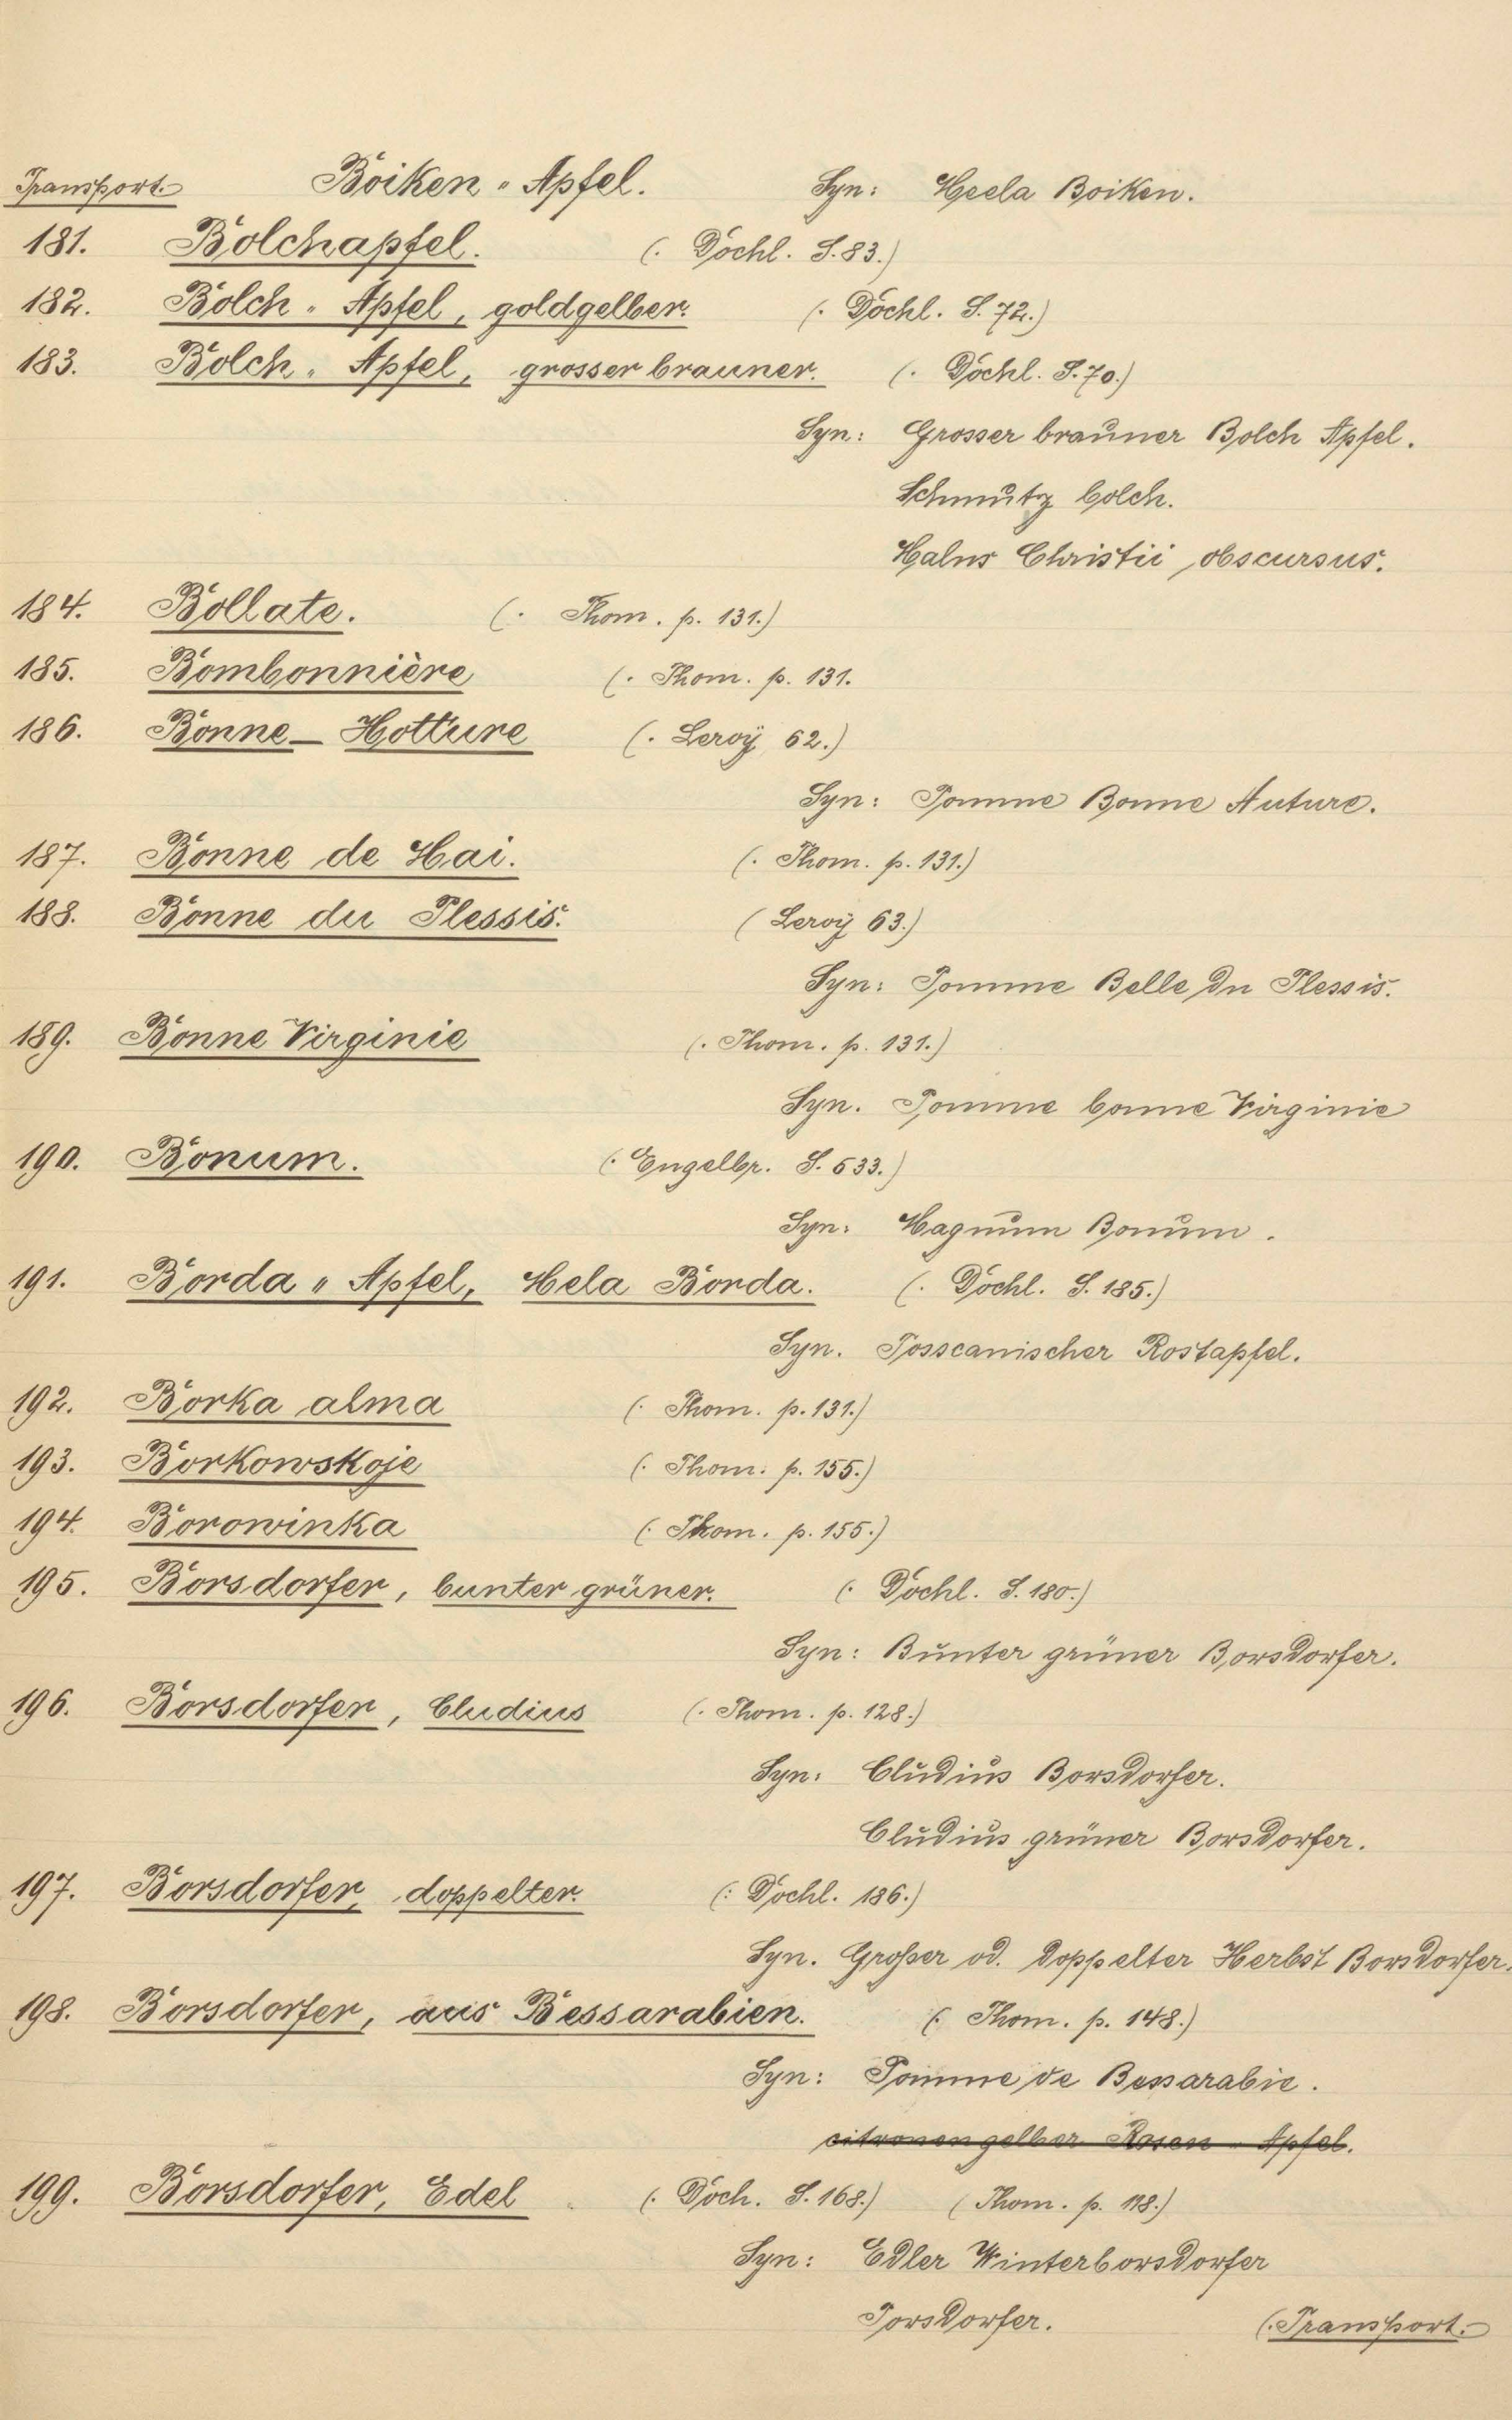 Transport. Boiken „ Apfel. Syn: Heela Boiken.
181. Bolchapfel. (. Dochl. S. 83.)
182. Bolch „ Apfel, goldgelber. (. Dochl. S. 72.)
183. Bolch „ Apfel, grosser brauner. (. Dochl. S. 70.)
Syn: Grosser brauner Bolch Apfel.
Schmutz bolch.
Malus Christii obscursus.
184. Bollate. (. Thom. p. 131.)
185. Bombonnière (. Thom. p. 131.
186. Bonne - Hotture (. Leroÿ 62.)
Syn: Pomme Bonne Auture.
187. Bonne de Mai. (. Thom. p. 131.)
188. Bonne du Plessis. ( Leroÿ 63.)
Syn: Pomme Belle du Plessis.
189. Bonne Virginie (. Thom. p. 131.)
Syn. Pomme bonne Virginie
190. Bonum. (. Engelbr. S. 533.)
Syn: Magnum Bonum.
191. Borda „ Apfel, Mela Borda. (. Dochl. S. 185.)
Syn. Tosscanischer Rostapfel.
192. Borka alma (. Thom. p. 131.)
193. Borkowskoje (. Thom. p. 155.)
194. Borowinka (. Thom. p. 155.)
195. Borsdorfer, bunter grüner. (. Dochl. S. 180.)
Syn: Bunter grüner Borsdorfer.
196. Borsdorfer, Cludius (. Thom. p. 128.)
Syn: Cludius Borsdorfer.
Cludius grüner Borsdorfer.
197. Borsdorfer, doppelter. (: Dochl. 186.)
Syn. Großer od. doppelter Herbst Borsdorfer.
198. Borsdorfer, aus Bessarabien. (. Thom. p. 148.)
Syn: Pomme de Bessarabie.
citronengelber Rosen - Apfel.
199. Borsdorfer, Edel (. Doch. S. 168.) ( Thom. p. 118.)
Syn: Edler Winterborsdorfer
Porsdorfer. (. Transport.